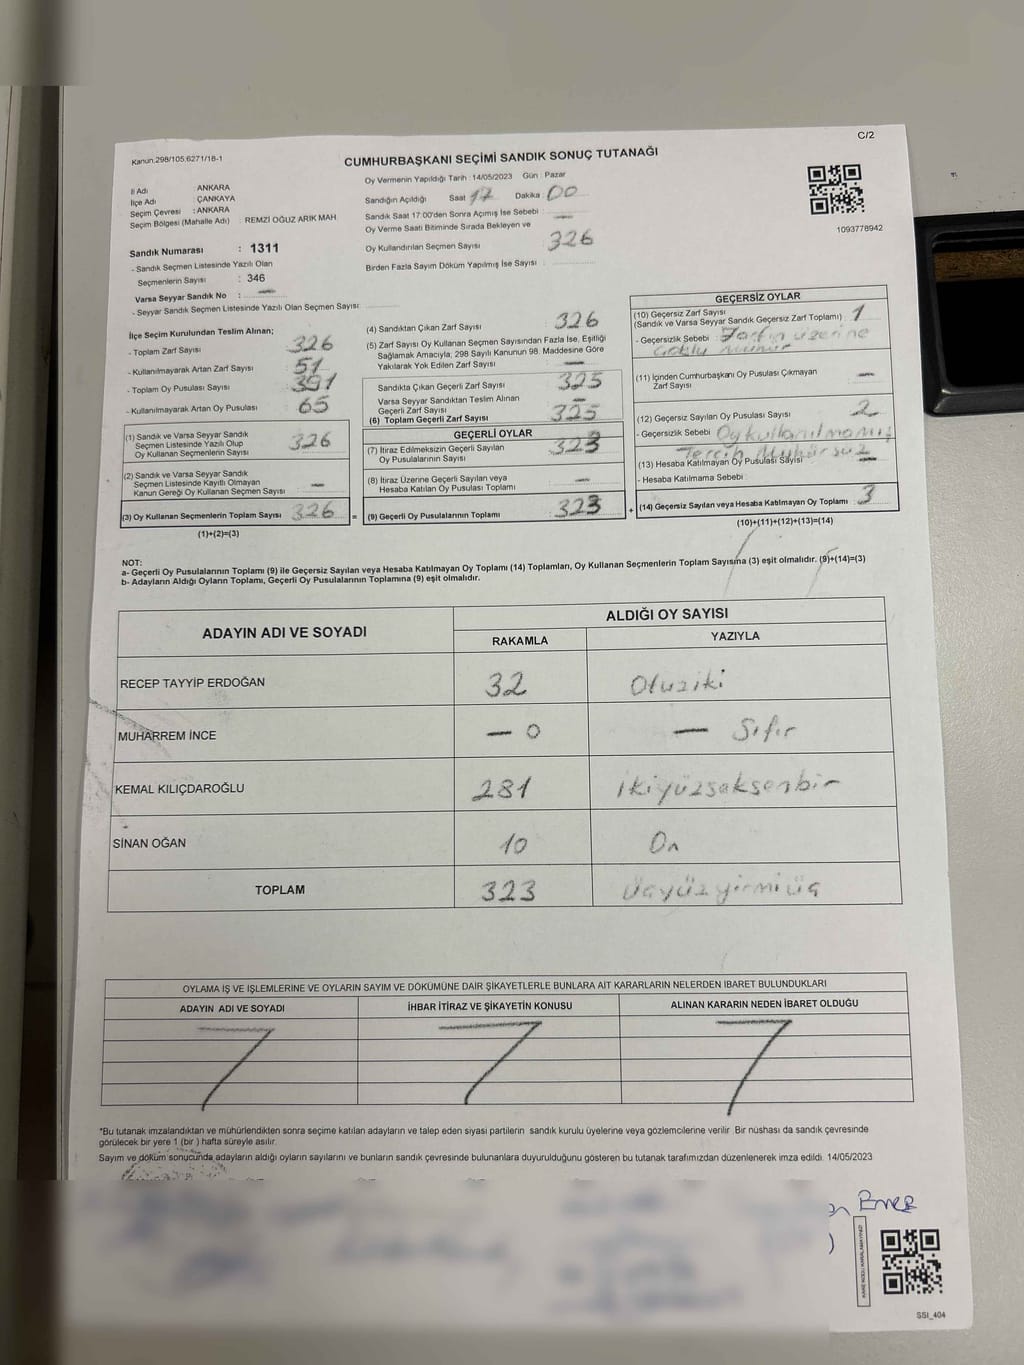 C/2
Kanun.298/105.6271/18-1
CUMHURBAŞKANI SEÇİMİ SANDIK SONUÇ TUTANAĞI
İl Adı : ANKARA
İlçe Adı : ÇANKAYA
Seçim Çevresi : ANKARA
Seçim Bölgesi (Mahalle Adı) : REMZİ OĞUZ ARIK MAH
Sandık Numarası : 1311
- Sandık Seçmen Listesinde Yazılı Olan
Seçmenlerin Sayısı : 346
Varsa Seyyar Sandık No : —
- Seyyar Sandık Seçmen Listesinde Yazılı Olan Seçmen Sayısı:
Oy Vermenin Yapıldığı Tarih : 14/05/2023 Gün : Pazar
Sandığın Açıldığı Saat 17 Dakika : 00
Sandık Saat 17:00'den Sonra Açımış İse Sebebi : —
Oy Verme Saati Bitiminde Sırada Bekleyen ve
Oy Kullandırılan Seçmen Sayısı 326
Birden Fazla Sayım Döküm Yapılmış İse Sayısı :
1093778942
İlçe Seçim Kurulundan Teslim Alınan;
- Toplam Zarf Sayısı 326
- Kullanılmayarak Artan Zarf Sayısı 51
- Toplam Oy Pusulası Sayısı 391
- Kullanılmayarak Artan Oy Pusulası 65
(1) Sandık ve Varsa Seyyar Sandık
Seçmen Listesinde Yazılı Olup
Oy Kullanan Seçmenlerin Sayısı 326
(2) Sandık ve Varsa Seyyar Sandık
Seçmen Listesinde Kayıtlı Olmayan
Kanun Gereği Oy Kullanan Seçmen Sayısı —
(3) Oy Kullanan Seçmenlerin Toplam Sayısı 326 =
(1)+(2)=(3)
(4) Sandıktan Çıkan Zarf Sayısı 326
(5) Zarf Sayısı Oy Kullanan Seçmen Sayısından Fazla İse, Eşitliği
Sağlamak Amacıyla, 298 Sayılı Kanunun 98. Maddesine Göre
Yakılarak Yok Edilen Zarf Sayısı —
Sandıkta Çıkan Geçerli Zarf Sayısı 325
Varsa Seyyar Sandıktan Teslim Alınan
Geçerli Zarf Sayısı —
(6) Toplam Geçerli Zarf Sayısı 325
GEÇERLİ OYLAR
(7) İtiraz Edilmeksizin Geçerli Sayılan
Oy Pusulalarının Sayısı : 323
(8) İtiraz Üzerine Geçerli Sayılan veya
Hesaba Katılan Oy Pusulası Toplamı : —
(9) Geçerli Oy Pusulalarının Toplamı : 323 +
GEÇERSİZ OYLAR
(10) Geçersiz Zarf Sayısı
(Sandık ve Varsa Seyyar Sandık Geçersiz Zarf Toplamı) 1
- Geçersizlik Sebebi : Zarfın üzerine
mühür
(11) İçinden Cumhurbaşkanı Oy Pusulası Çıkmayan
Zarf Sayısı —
(12) Geçersiz Sayılan Oy Pusulası Sayısı 2
- Geçersizlik Sebebi Oy kullanılmamış
Tercih Mühürsüz
(13) Hesaba Katılmayan Oy Pusulası Sayısı —
- Hesaba Katılmama Sebebi
(14) Geçersiz Sayılan veya Hesaba Katılmayan Oy Toplamı 3
(10)+(11)+(12)+(13)=(14)
NOT:
a- Geçerli Oy Pusulalarının Toplamı (9) ile Geçersiz Sayılan veya Hesaba Katılmayan Oy Toplamı (14) Toplamları, Oy Kullanan Seçmenlerin Toplam Sayısına (3) eşit olmalıdır. (9)+(14)=(3)
b- Adayların Aldığı Oyların Toplamı, Geçerli Oy Pusulalarının Toplamına (9) eşit olmalıdır.
ADAYIN ADI VE SOYADI
ALDIĞI OY SAYISI
RAKAMLA YAZIYLA
RECEP TAYYİP ERDOĞAN 32 Otuziki
MUHARREM İNCE — 0 — Sıfır
KEMAL KILIÇDAROĞLU 281 ikiyüzseksenbir
SİNAN OĞAN 10 On
TOPLAM 323 Üçyüzyirmiüç
OYLAMA İŞ VE İŞLEMLERİNE VE OYLARIN SAYIM VE DÖKÜMÜNE DAİR ŞİKAYETLERLE BUNLARA AİT KARARLARIN NELERDEN İBARET BULUNDUKLARI
ADAYIN ADI VE SOYADI İHBAR İTİRAZ VE ŞİKAYETİN KONUSU ALINAN KARARIN NEDEN İBARET OLDUĞU
*Bu tutanak imzalandıktan ve mühürlendikten sonra seçime katılan adayların ve talep eden siyasi partilerin sandık kurulu üyelerine veya gözlemcilerine verilir Bir nüshası da sandık çevresinde
görülecek bir yere 1 (bir ) hafta süreyle asılır.
Sayım ve döküm sonucunda adayların aldığı oyların sayılarını ve bunların sandık çevresinde bulunanlara duyurulduğunu gösteren bu tutanak tarafımızdan düzenlenerek imza edildi. 14/05/2023
SSI_404